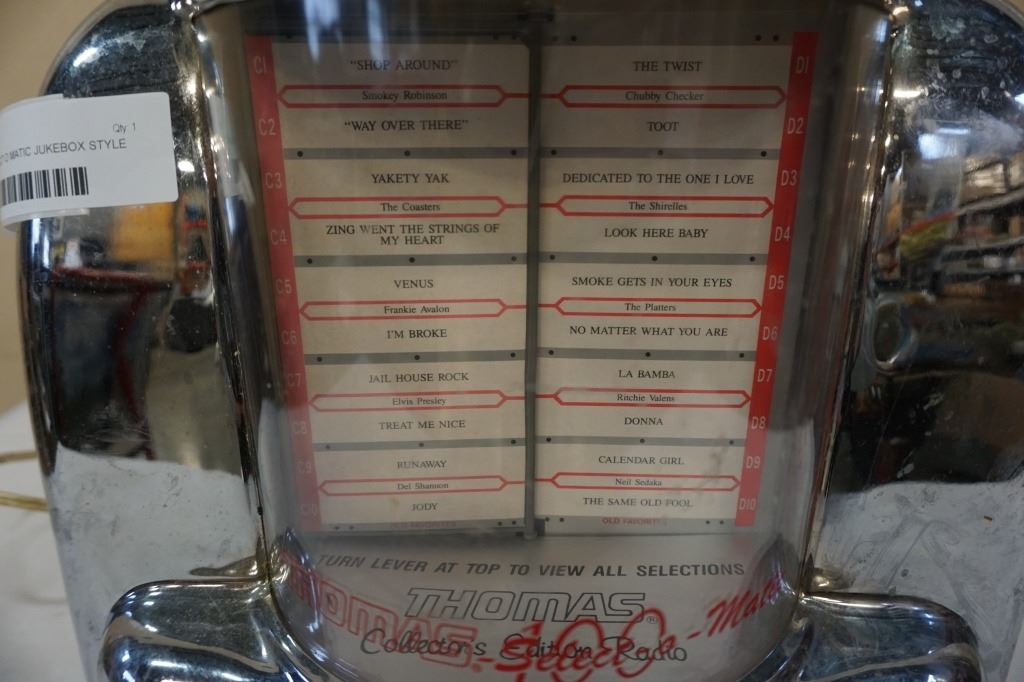 Qty: 1
MATIC JUKEBOX STYLE
C1 "SHOP AROUND"
Smokey Robinson
C2 "WAY OVER THERE"
C3 YAKETY YAK
The Coasters
C4 ZING WENT THE STRINGS OF
MY HEART
C5 VENUS
Frankie Avalon
C6 I'M BROKE
C7 JAIL HOUSE ROCK
Elvis Presley
C8 TREAT ME NICE
C9 RUNAWAY
Del Shannon
C10 JODY
OLD FAVORITES
THE TWIST D1
Chubby Checker
TOOT D2
DEDICATED TO THE ONE I LOVE D3
The Shirelles
LOOK HERE BABY D4
SMOKE GETS IN YOUR EYES D5
The Platters
NO MATTER WHAT YOU ARE D6
LA BAMBA D7
Ritchie Valens
DONNA D8
CALENDAR GIRL D9
Neil Sedaka
THE SAME OLD FOOL D10
OLD FAVORITES
TURN LEVER AT TOP TO VIEW ALL SELECTIONS
THOMAS®
Collector's Edition Radio
THOMAS-Select-O-Matic
100